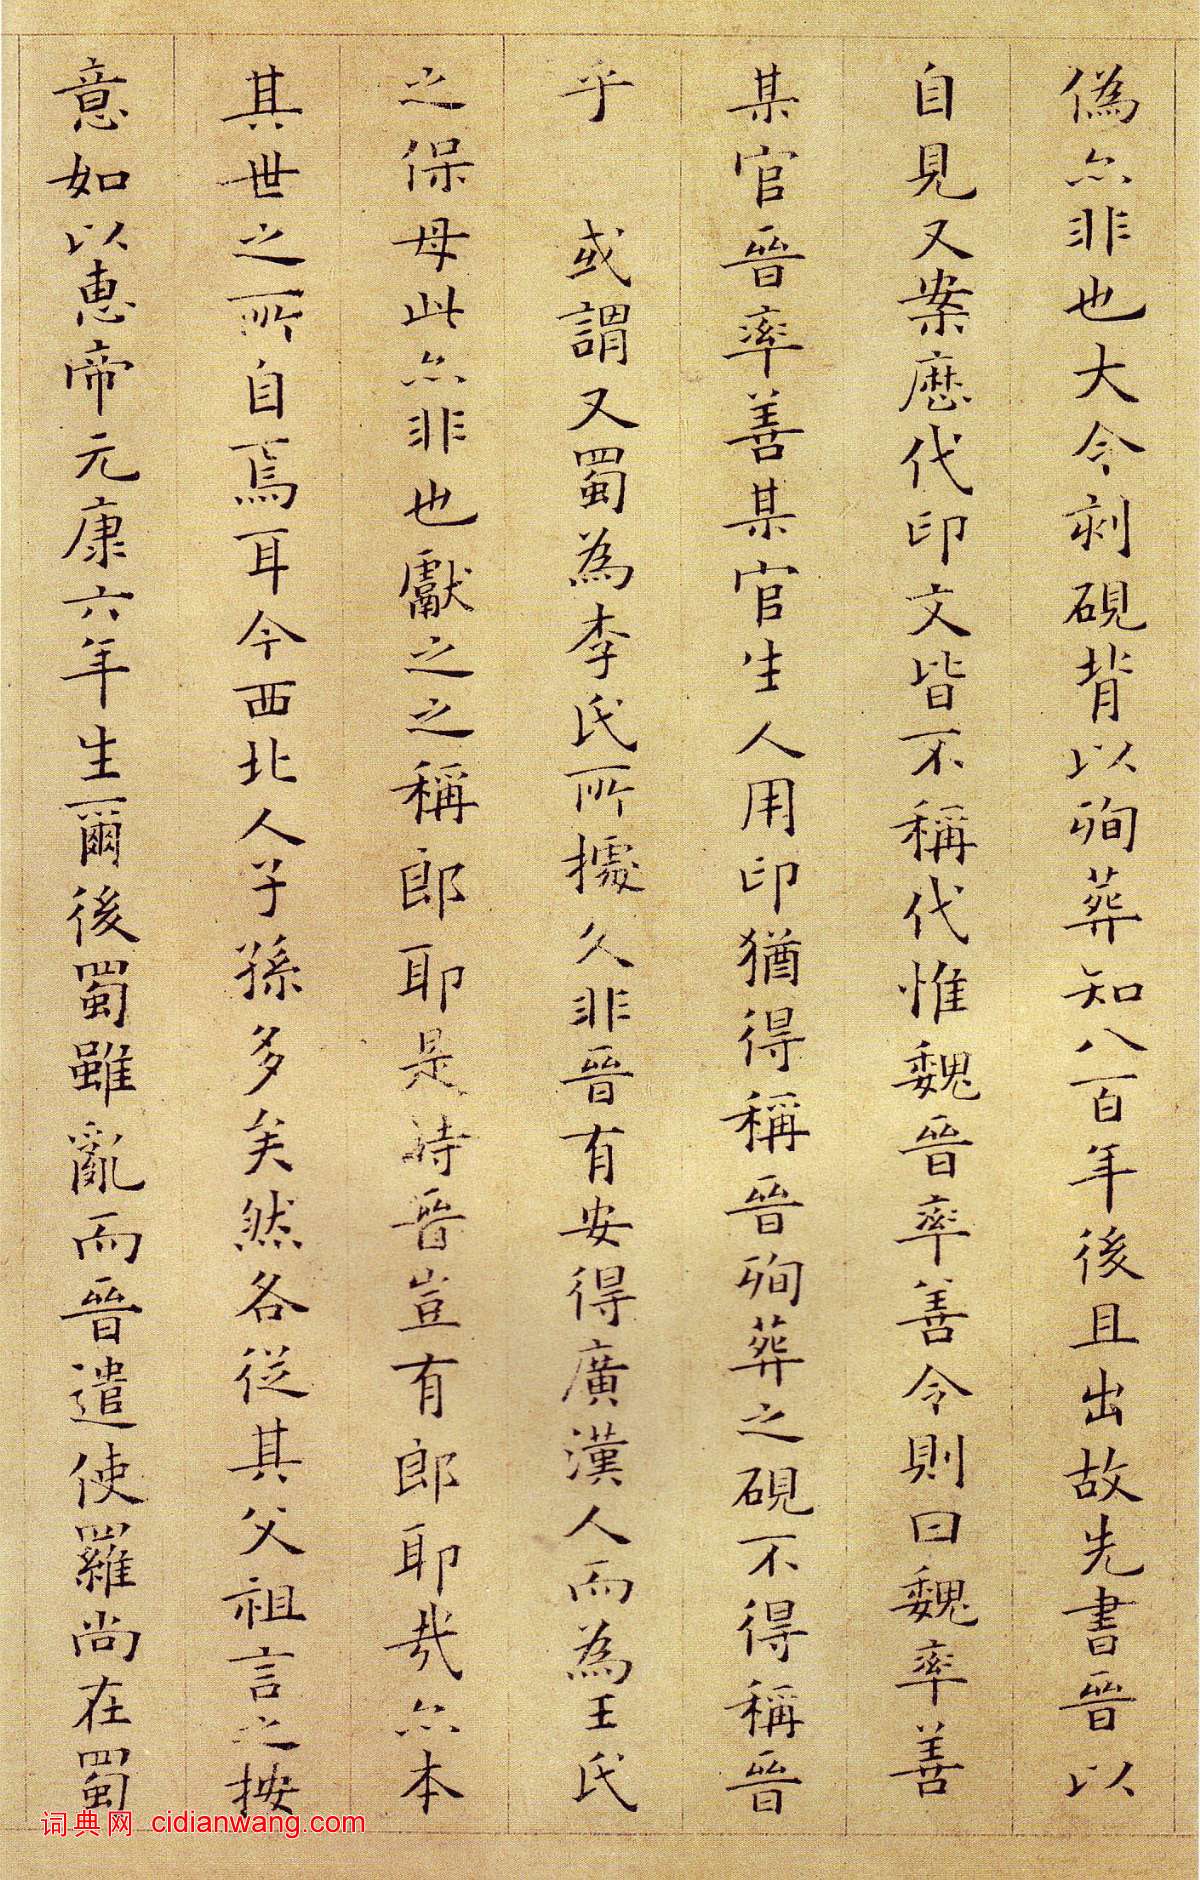 偽亦非也大令刻硯背以殉葬知八百年後且出故先書晉以
自見又案歷代印文皆不稱代惟魏晉率善令則曰魏率善
某官晉率善某官生人用印猶得稱晉殉葬之硯不得稱晉
乎　或謂又蜀為李氏所據久非晉有安得廣漢人而為王氏
之保母此亦非也獻之之稱郎耶是時晉豈有郎耶哉亦本
其世之所自焉耳今西北人子孫多矣然各從其父祖言之按
意如以惠帝元康六年生爾後蜀雖亂而晉遣使羅尚在蜀
词典网 cidianwang.com